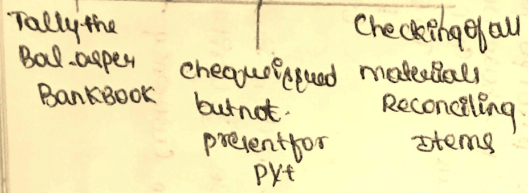 Tally the
Bal. asper
BankBook
cheque issued
but not.
present for
pyt
Checking of all
materials
Reconciling
Items